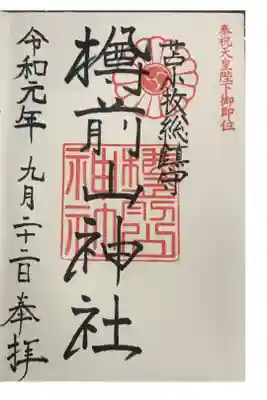 奉祝天皇陛下御即位
苫小牧総鎮守
樽前山神社
令和元年九月二十二日奉拝